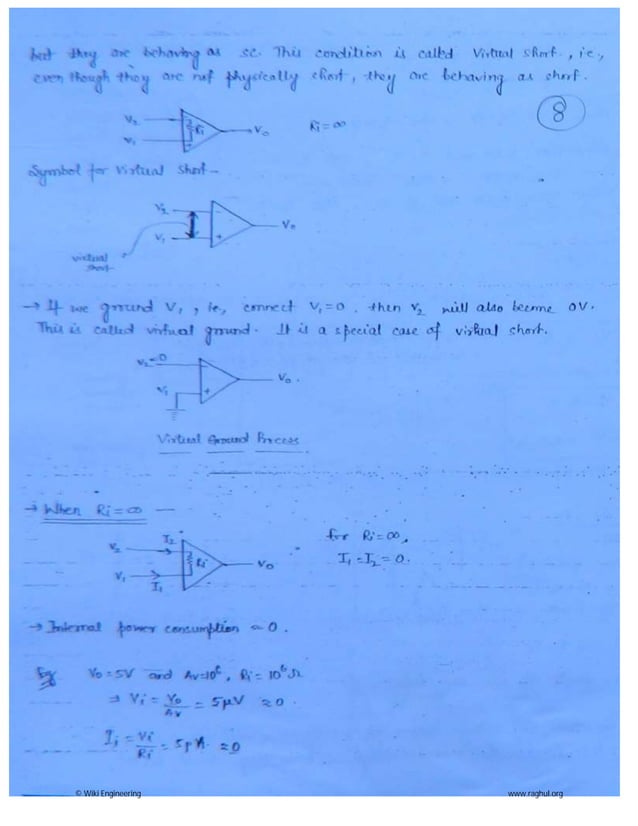 but they are behaving as sc. This condition is called Virtual short., ie.,
even though they are not physically short, they are behaving as short.
8
V₂
V₁
Ri
Vo
Ri = ∞
Symbol for Virtual Short-
V₂
V₁
Vo
virtual
short
→ If we ground V₁, ie., connect V₁=0, then V₂ will also become 0V.
This is called virtual ground. It is a special case of virtual short.
V₂=0
V₁
Vo.
Virtual Ground Process
→ When Ri = ∞ —
I₂
V₂
V₁
I₁
Ri
Vo
for Ri = ∞,
I₁ = I₂ = 0.
→ Internal power consumption ≈ 0.
Eg Vo = 5V and Av = 10⁶, Ri = 10⁶ Ω
⇒ Vi = Vo/Av = 5μV ≈ 0.
Ii = Vi/Ri = 5pA. ≈ 0
© Wiki Engineering
www.raghul.org